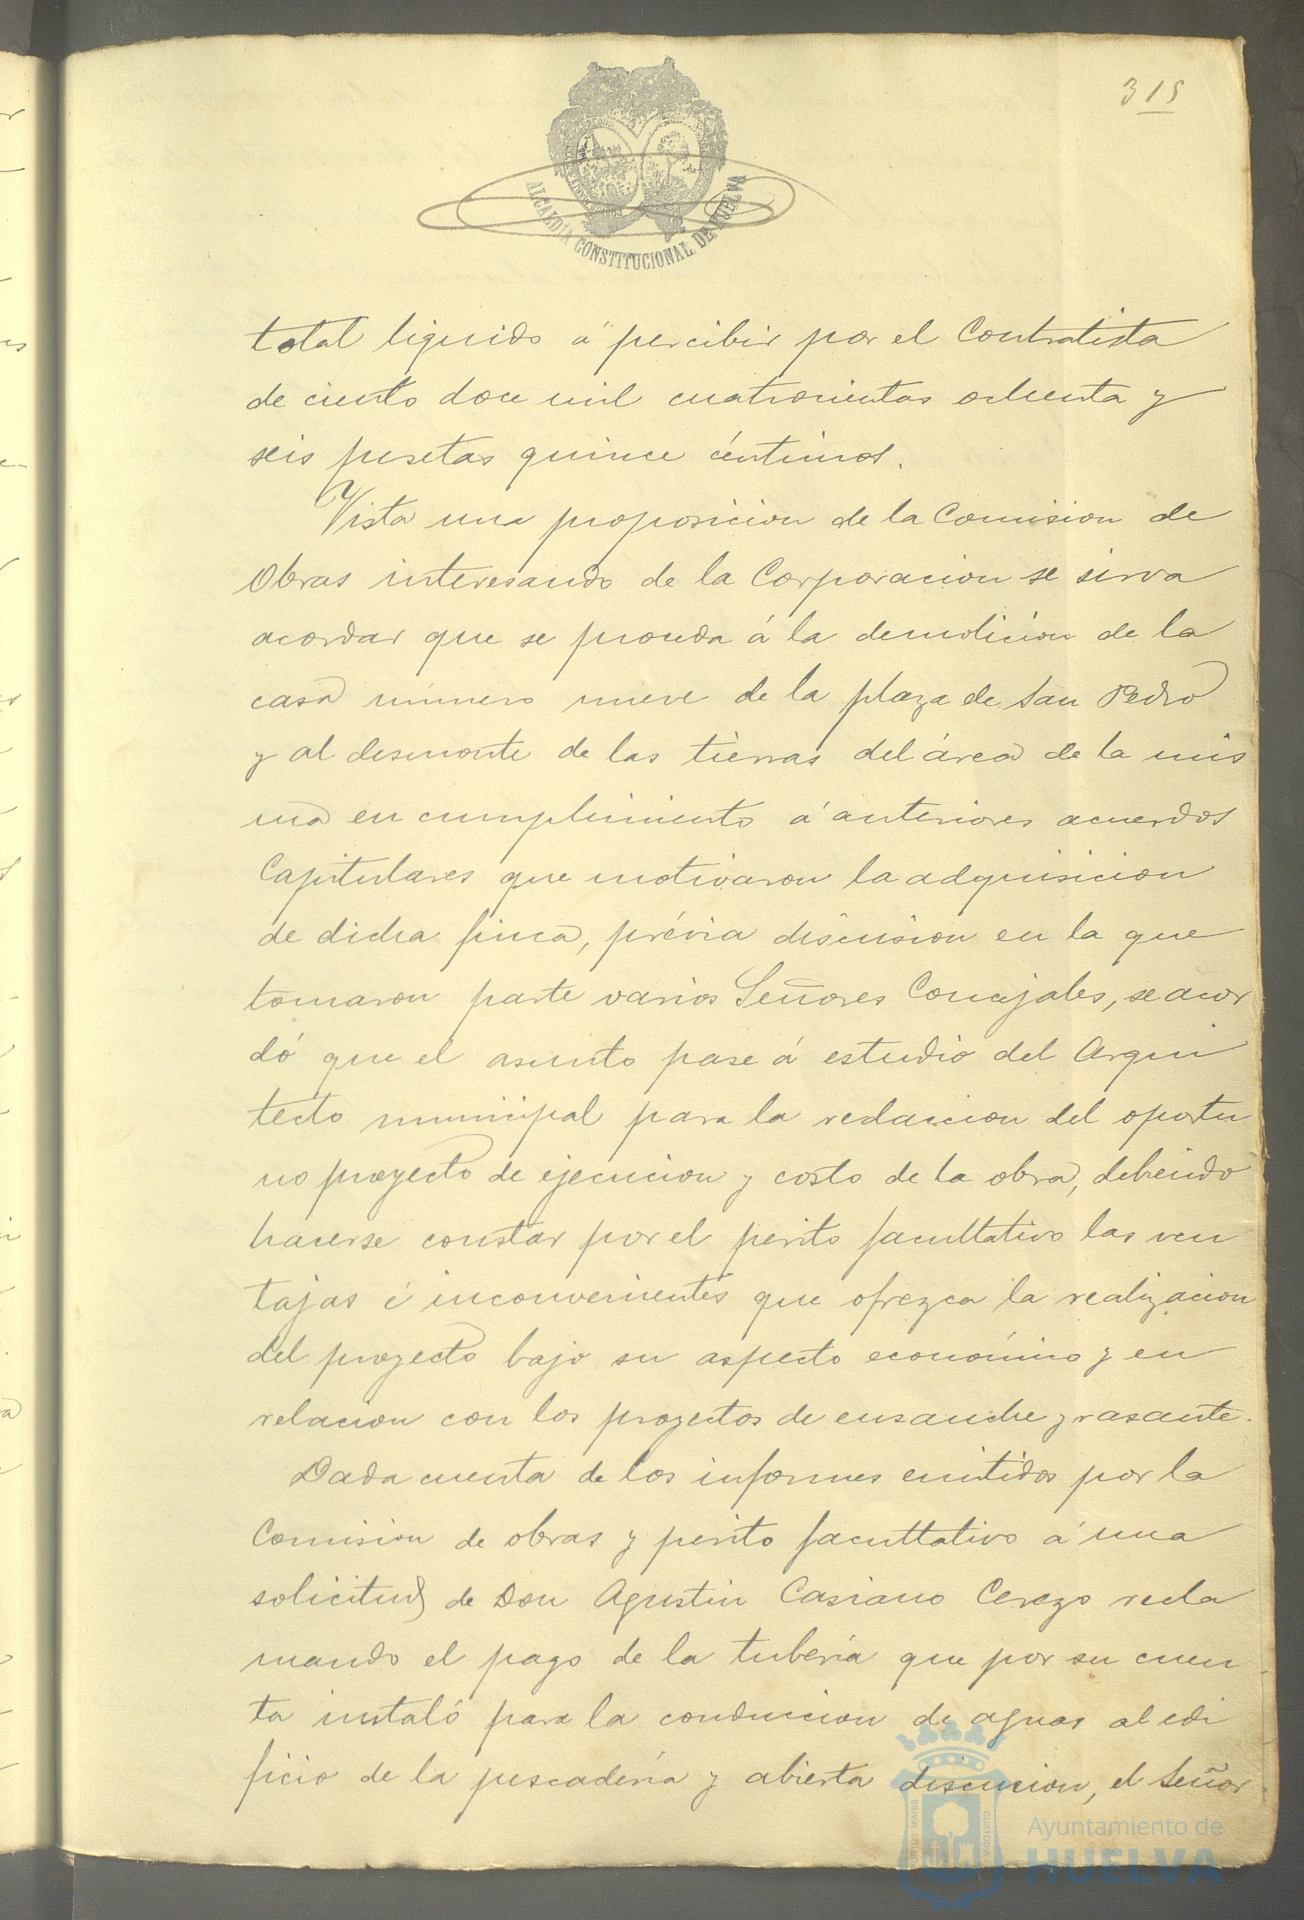 315
ALCALDÍA CONSTITUCIONAL DE HUELVA
total liquido á percibir por el Contratista
de ciento doce mil cuatrocientas ochenta y
seis pesetas quince céntimos.
Vista una proposicion de la Comision de
Obras interesando de la Corporacion se sirva
acordar que se proceda á la demolicion de la
casa número nueve de la plaza de San Pedro
y al desmonte de las tierras del área de la mis
ma en cumplimiento á anteriores acuerdos
Capitulares que motivaron la adquisicion
de dicha finca, prévia discusion en la que
tomaron parte varios Señores Concejales, se acor
dó que el asunto pase á estudio del Arqui
tecto municipal para la redaccion del oportu
no proyecto de ejecucion y costo de la obra, debiendo
hacerse constar por el perito facultativo las ven
tajas é inconvenientes que ofrezca la realizacion
del proyecto bajo su aspecto económico y en
relacion con los proyectos de ensanche y rasante.
Dada cuenta de los informes emitidos por la
Comision de obras y perito facultativo á una
solicitud de Don Agustin Casiano Cerezo recla
mando el pago de la tubería que por su cuen
ta instaló para la conduccion de aguas al edi
ficio de la pescadería y abierta discucion, el Señor
Ayuntamiento de
HUELVA